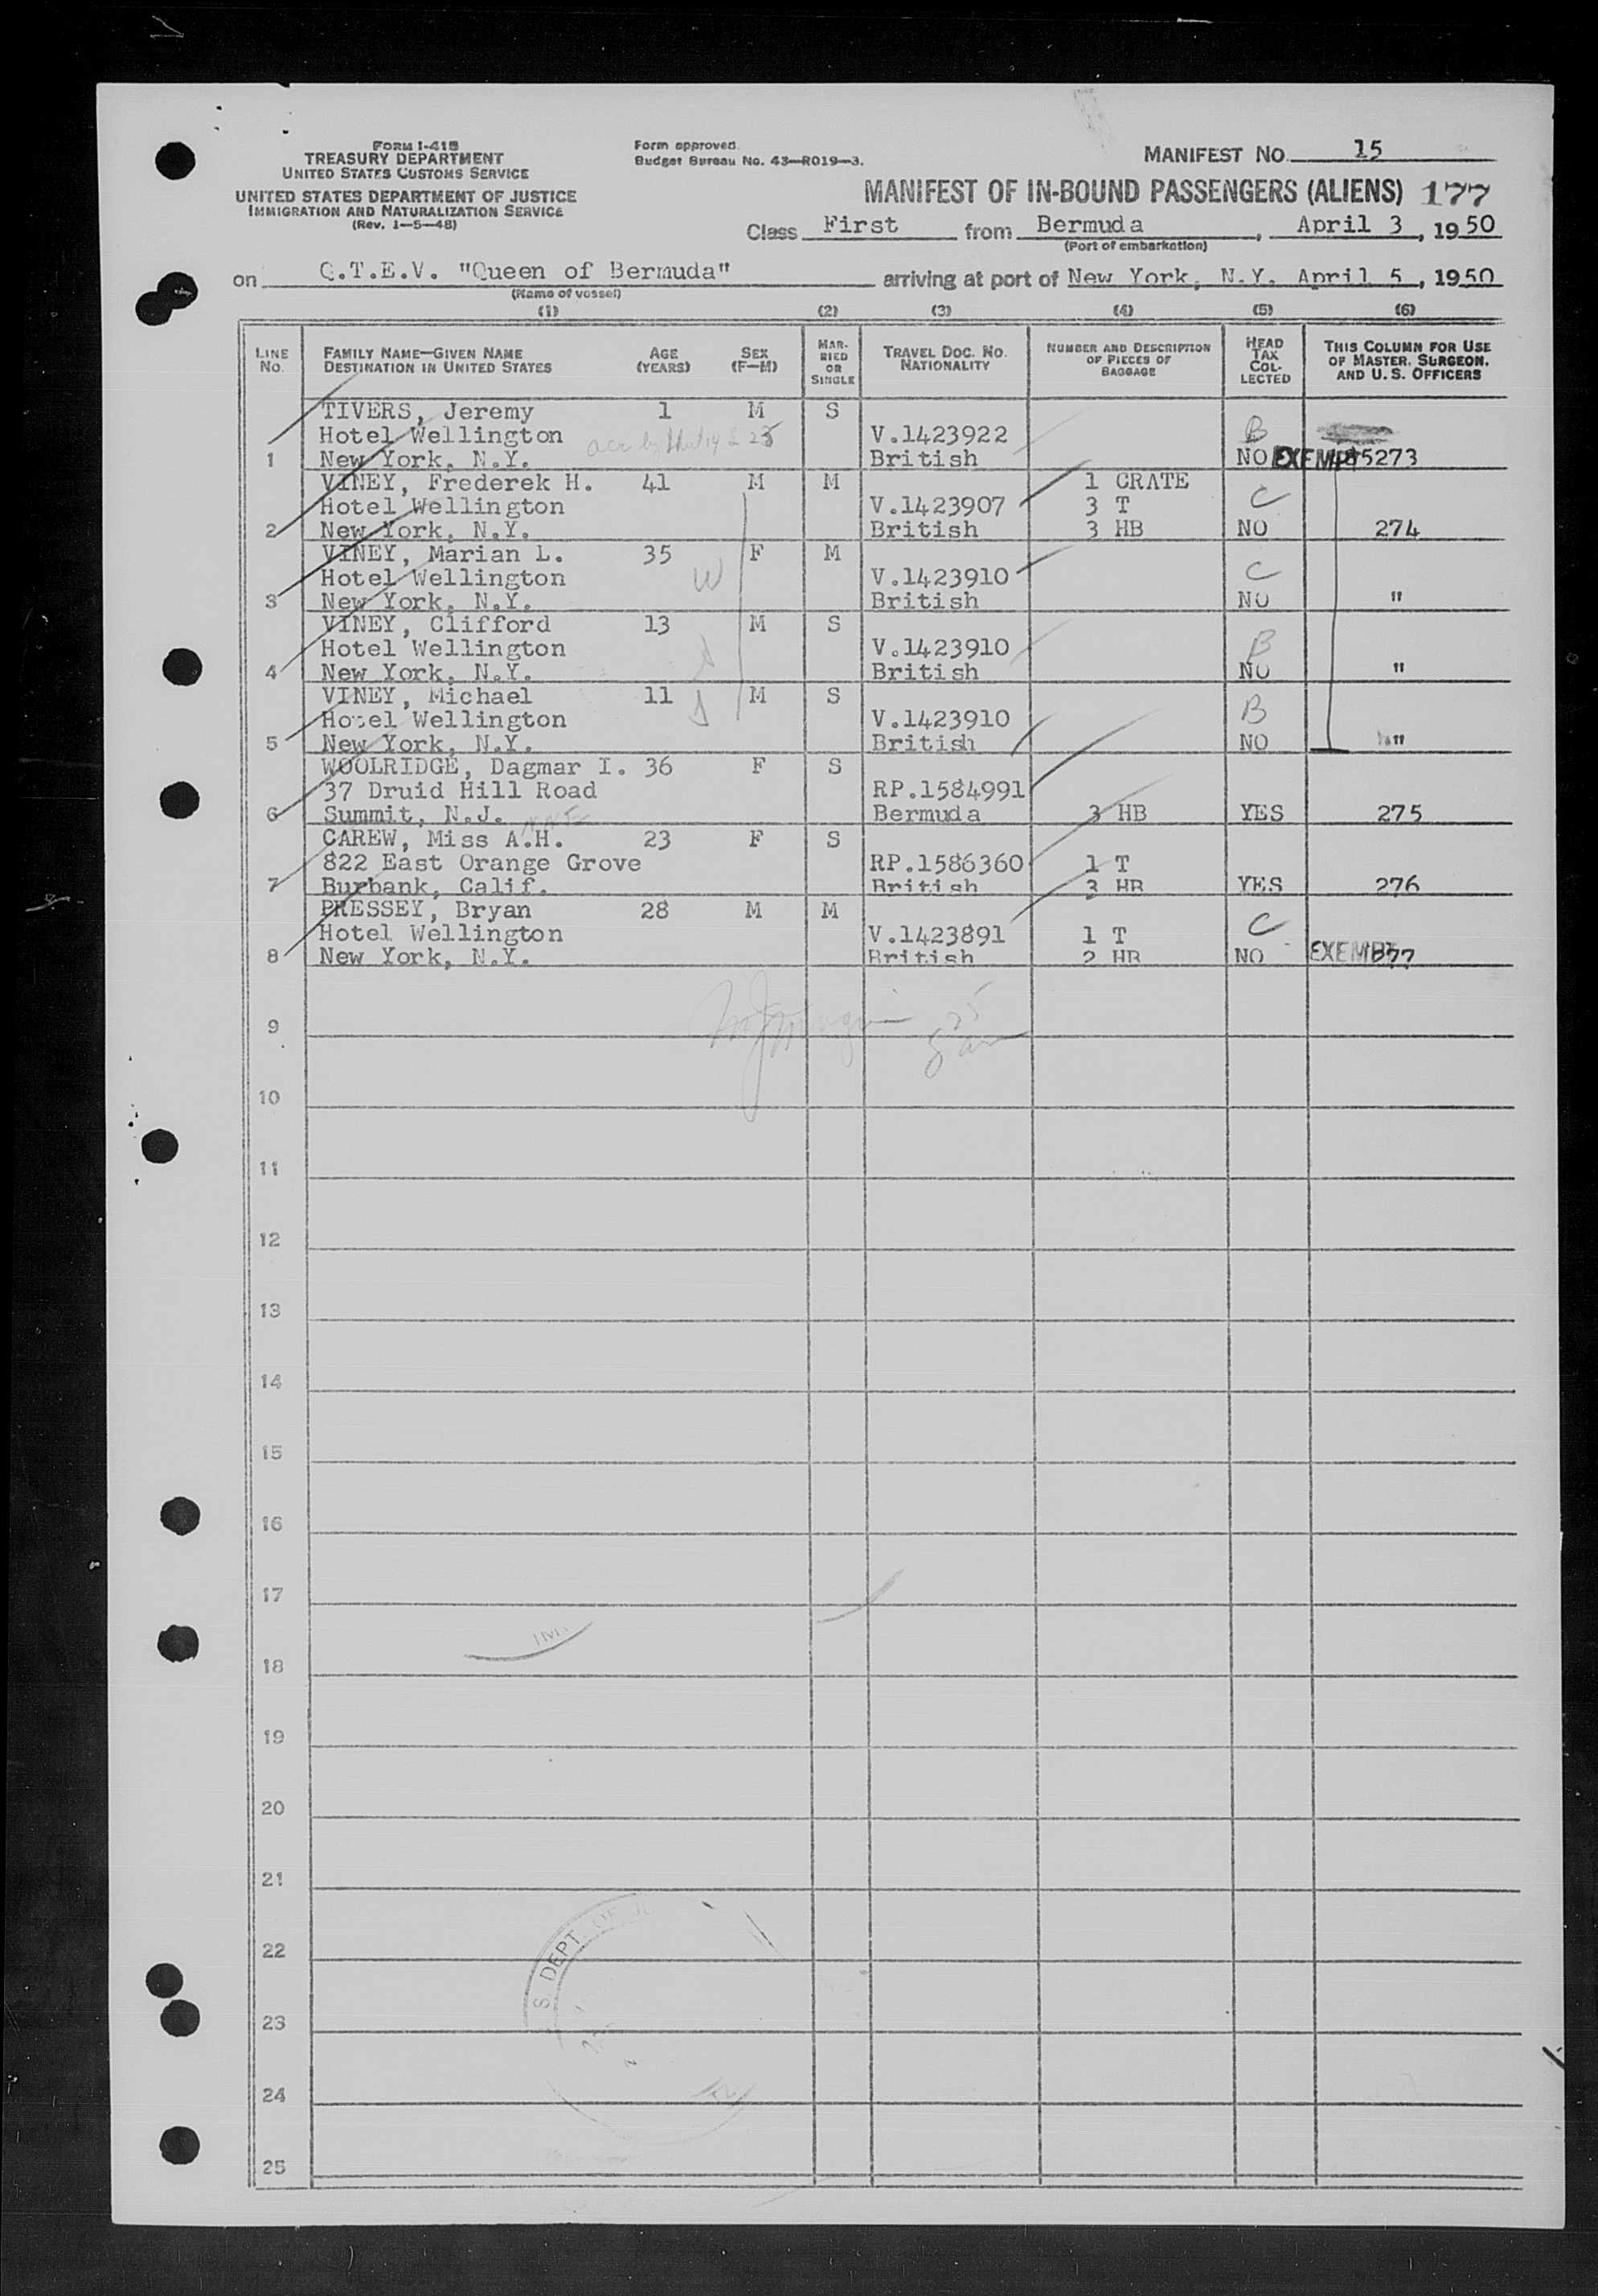 FORM I-415
TREASURY DEPARTMENT
UNITED STATES CUSTOMS SERVICE
UNITED STATES DEPARTMENT OF JUSTICE
IMMIGRATION AND NATURALIZATION SERVICE
(Rev. 1-5-48)
Form approved.
Budget Bureau No. 43-R019-3.
MANIFEST NO. 15
MANIFEST OF IN-BOUND PASSENGERS (ALIENS) 177
Class First from Bermuda, April 3, 1950
(Port of embarkation)
on Q.T.E.V. "Queen of Bermuda" arriving at port of New York, N.Y. April 5, 1950
(Name of vessel)
(1) (2) (3) (4) (5) (6)
LINE NO. FAMILY NAME—GIVEN NAME DESTINATION IN UNITED STATES AGE (YEARS) SEX (F—M) MARRIED OR SINGLE TRAVEL DOC. NO. NATIONALITY NUMBER AND DESCRIPTION OF PIECES OF BAGGAGE HEAD TAX COLLECTED THIS COLUMN FOR USE OF MASTER, SURGEON, AND U.S. OFFICERS
TIVERS, Jeremy 1 M S
Hotel Wellington V.1423922 B
1 New York, N.Y. British NO EXEMPT 485273
VINEY, Frederek H. 41 M M 1 CRATE
Hotel Wellington V.1423907 3 T C
2 New York, N.Y. British 3 HB NO 274
VINEY, Marian L. 35 F M
Hotel Wellington W V.1423910 C
3 New York, N.Y. British NO "
VINEY, Clifford 13 M S
Hotel Wellington V.1423910 B
4 New York, N.Y. British NO "
VINEY, Michael 11 M S
Hotel Wellington V.1423910 B
5 New York, N.Y. British NO "
WOOLRIDGE, Dagmar I. 36 F S
37 Druid Hill Road RP.1584991
6 Summit, N.J. Bermuda 3 HB YES 275
CAREW, Miss A.H. 23 F S
822 East Orange Grove RP.1586360 1 T
7 Burbank, Calif. British 3 HB YES 276
PRESSEY, Bryan 28 M M
Hotel Wellington V.1423891 1 T C
8 New York, N.Y. British 2 HB NO EXEMPT 277
9
10
11
12
13
14
15
16
17
18
19
20
21
22
23
24
25
S. DEPT. OF